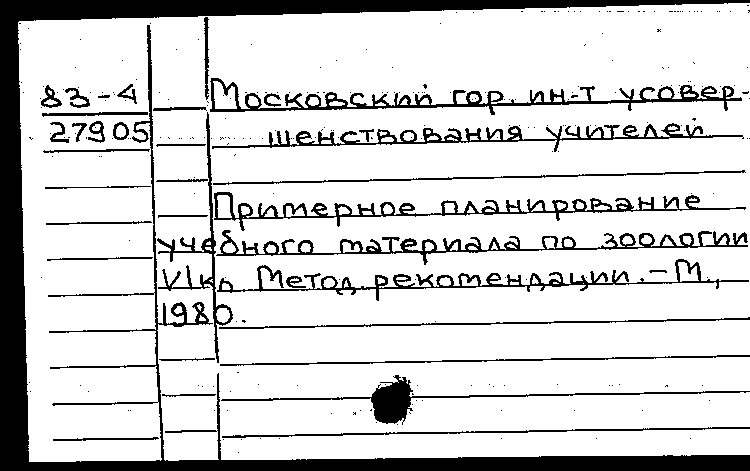 83-4 Московский гор. ин-т усовер-
27905 шенствования учителей
Примерное планирование
учебного материала по зоологии
VI кл Метод. рекомендации. - М.,
1980.